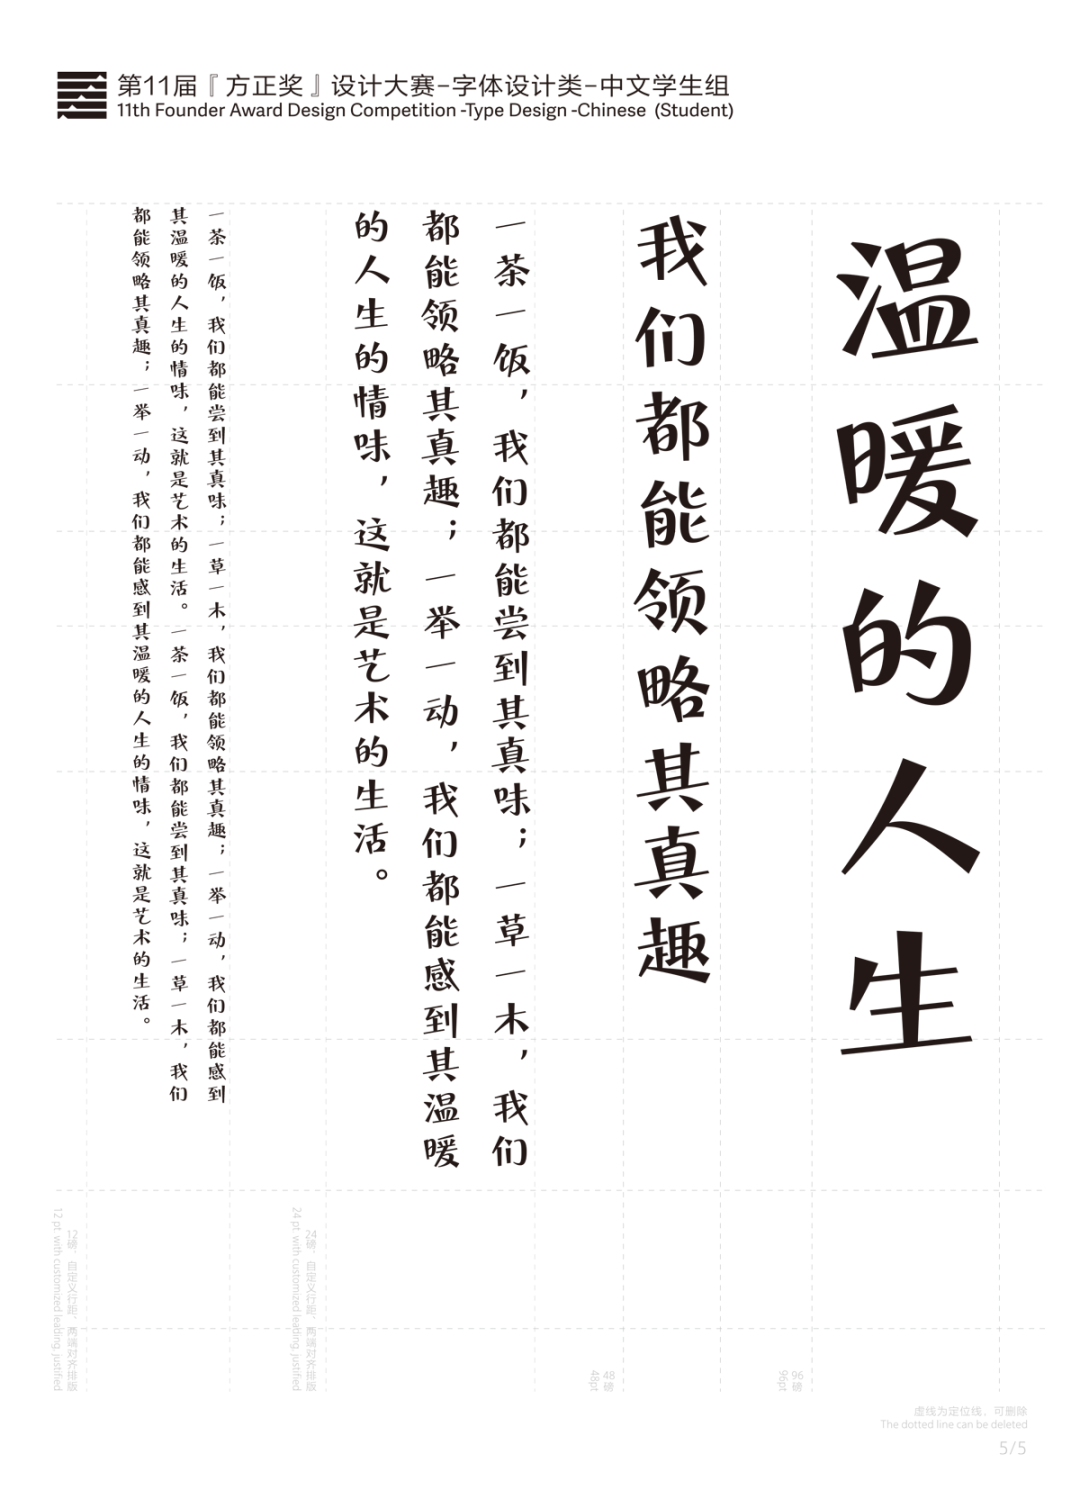 第11届『方正奖』设计大赛-字体设计类-中文学生组
11th Founder Award Design Competition -Type Design -Chinese (Student)
温暖的人生
我们都能领略其真趣
一茶一饭，我们都能尝到其真味；一草一木，我们
都能领略其真趣；一举一动，我们都能感到其温暖
的人生的情味，这就是艺术的生活。
一茶一饭，我们都能尝到其真味；一草一木，我们都能领略其真趣；一举一动，我们都能感到
其温暖的人生的情味，这就是艺术的生活。一茶一饭，我们都能尝到其真味；一草一木，我们
都能领略其真趣；一举一动，我们都能感到其温暖的人生的情味，这就是艺术的生活。
96磅
96pt
48磅
48pt
24磅，自定义行距，两端对齐排版
24 pt with customized leading, justified
12磅，自定义行距，两端对齐排版
12 pt with customized leading, justified
虚线为定位线，可删除
The dotted line can be deleted
5/5